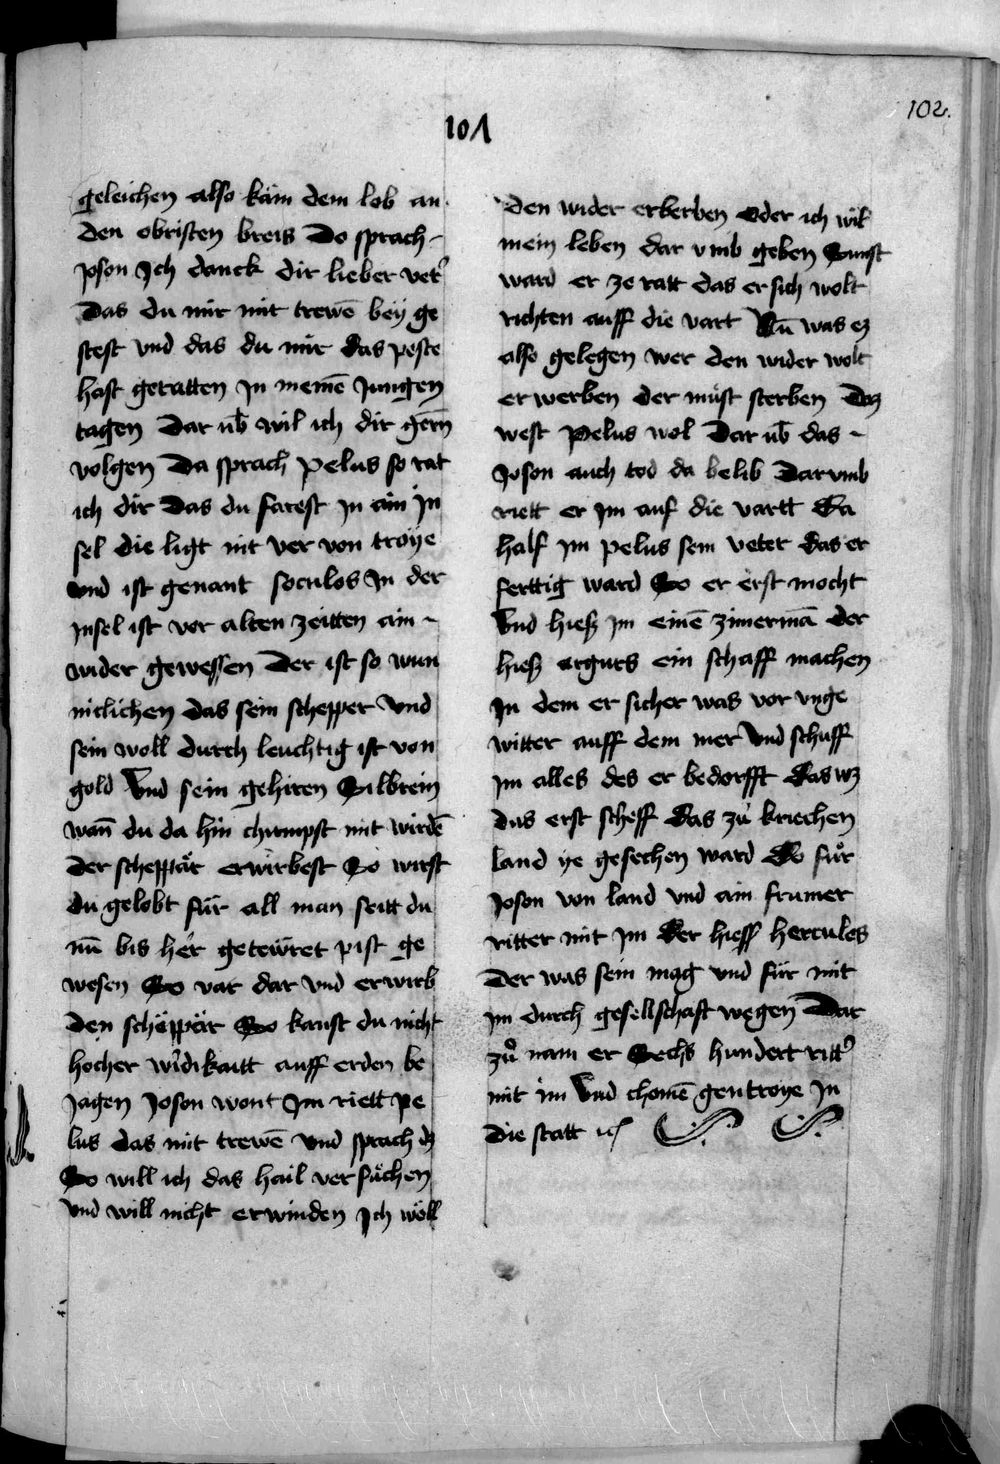 102.
101
geleichen also käm dem lob an
den obristen breis Do sprach
Joson Ich danck dir lieber vetˀ
Das du mir mit trewē bey ge
stest vnd das du mir das peste
hast geratten In meinē Jungen
tagen Dar vb̄ wil ich dir gern̄
volgen Da sprach pelus so rat
ich dir Das du farest In ain In
sel die ligt nit ver von troye
vnd ist genant soculos In der
Insel ist vor alten zeitten ain
wider gewessen Der ist so wun
niclichen das sein schepper vnd
sein woll durch leuchtig ist von
gold Vnd sein gehiren Silbrein
wan̄ du da hin chumpst mit wirdē
Der scheppär erwirbest So wirst
du gelobt für all man seitt du
nu bis her getewret pist ge
wesen So var dar vnd erwirb
Den schëppär So kanst du nicht
hocher wˀdikaitt auff erden be
Jagen Joson wont Im riett pe
lus das mit trewē vnd sprach dz
So will ich das hail versüchen
vnd will nicht erwinden Ich wöll
den wider erberben oder ich wil
mein leben dar vmb geben Sunst
ward er ze ratt das er sich wolt
richten auff die vart Nū was ez
also gelegen wer den wider wolt
erwerben der müst sterben Daz
west Pelus wol Dar vb̄ das
Joson auch tod da belib Darvmb
riett er Im auf die vartt Da
half Im pelus sein veter das er
ferttig ward So er erst mocht
Vnd hiesz Im einē zimermā der
hiesz argurs ein schaff machen
In dem er sicher was vor vnge
witter auff dem mer Vnd schuff
Im alles des er bedorfft Das wz
das erst scheff Das zů kriechen
land ye gesechen ward Do für
Joson von land vnd ain frumer
ritter mit Im Der hiess hercules
Der was sein mag vnd für mit
Im durch gesellschaft wegen Dar
zů nam er Sechs hundert rittˀ
mit im Vnd chomē gen troye In
die statt